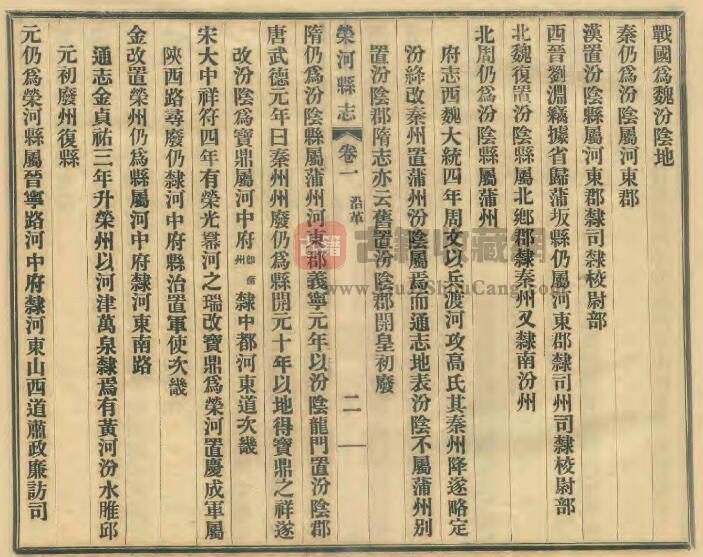 戰國為魏汾陰地
秦仍為汾陰屬河東郡
漢置汾陰縣屬河東郡隸司隸校尉部
西晉劉淵竊據省歸蒲坂縣仍屬河東郡隸司州司隸校尉部
北魏復置汾陰縣屬北鄉郡隸秦州又隸南汾州
北周仍為汾陰縣屬蒲州
府志西魏大統四年周文以兵渡河攻高氏其秦州降遂略定
汾絳改秦州置蒲州汾陰屬焉而通志地表汾陰不屬蒲州別
置汾陰郡隋志亦云舊置汾陰郡開皇初廢
榮河縣志 卷一 沿革 二
隋仍為汾陰縣屬蒲州河東郡義寧元年以汾陰龍門置汾陰郡
唐武德元年曰秦州州廢仍為縣開元十年以地得寶鼎之祥遂
改汾陰為寶鼎屬河中府即蒲州隸中都河東道次畿
宋大中祥符四年有榮光冪河之瑞改寶鼎為榮河置慶成軍屬
陝西路尋廢仍隸河中府縣治置軍使次畿
金改置榮州仍為縣屬河中府隸河東南路
通志金貞祐三年升榮州以河津萬泉隸焉有黃河汾水睢邱
元初廢州復縣
元仍為榮河縣屬晉寧路河中府隸河東山西道肅政廉訪司
古籍收藏網